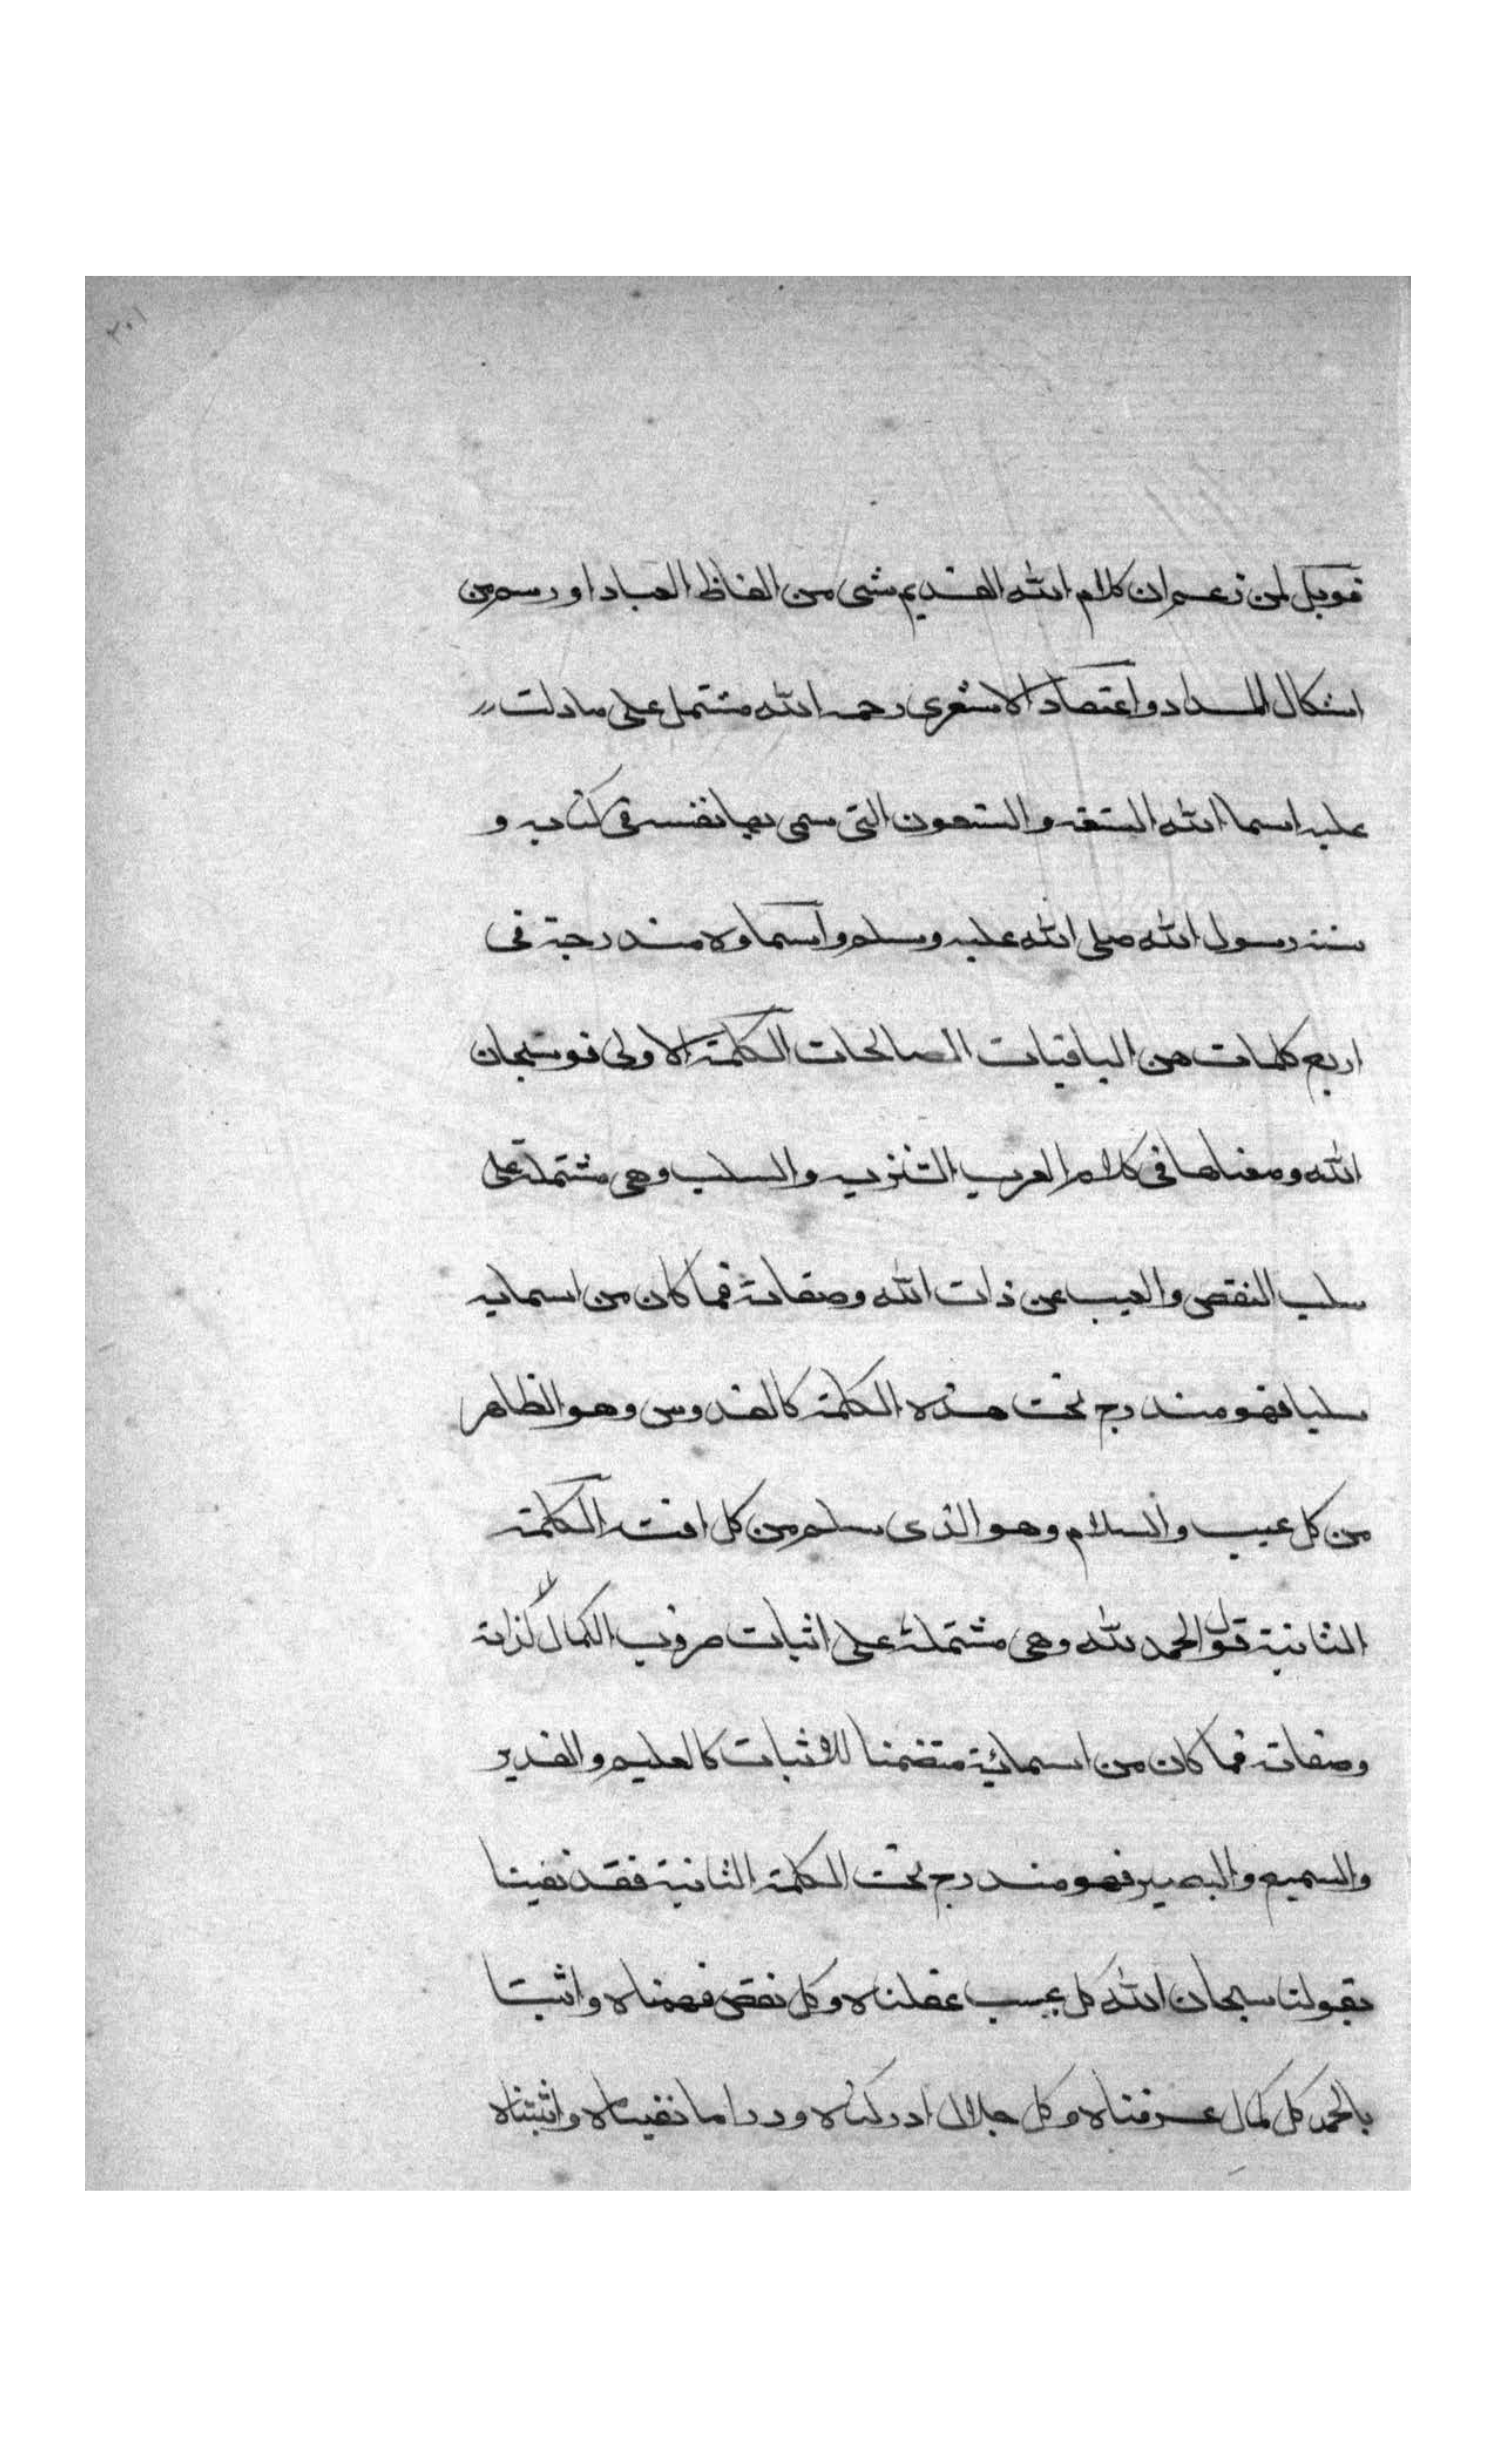 ٣٠١
فويل لمن زعم ان كلام الله القديم شى من الفاظ العباد او رسم من
اشكال المداد واعتقاد الاشعرى رحمه الله مشتمل على ما دلت
عليه اسما الله التسعه والتسعون التى سمى بها نفسه فى كتابه و
سنة رسول الله صلى الله عليه وسلم واسماوه مندرجة فى
اربع كلمات هن الباقيات الصالحات الكلمة الاولى قو سبحان
الله ومعناها فى كلام العرب التنزيه والسلب وهى مشتملة على
سلب النقص والعيب عن ذات الله وصفاته فما كان من اسمايه
سلبا فهو مندرج تحت هذه الكلمة كالقدوس وهو الطاهر
من كل عيب والسلام وهو الذى سلم من كل افة الكلمة
الثانية قول الحمد لله وهى مشتملة على اثبات ضروب الكمال لذاته
وصفاته فما كان من اسمائية متضمنا للاثبات كالعليم والقدير
والسميع والبصير فهو مندرج تحت الكلمة الثانية فقد نفينا
بقولنا سبحان الله كل عيب عقلناه وكل نقص فهمناه واثبتنا
بالحمد كل كمال عرفناه وكل جلال ادركناه وورا ما نفيناه واثبتناه